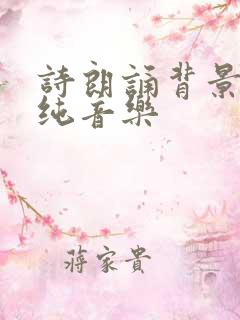 詩朗誦背景
纯音樂
蔣家貴